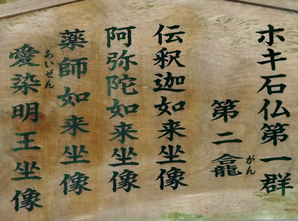 ホキ石仏第一群
第二龕
がん
伝釈迦如来坐像
阿弥陀如来坐像
薬師如来坐像
愛染明王坐像
あいぜん